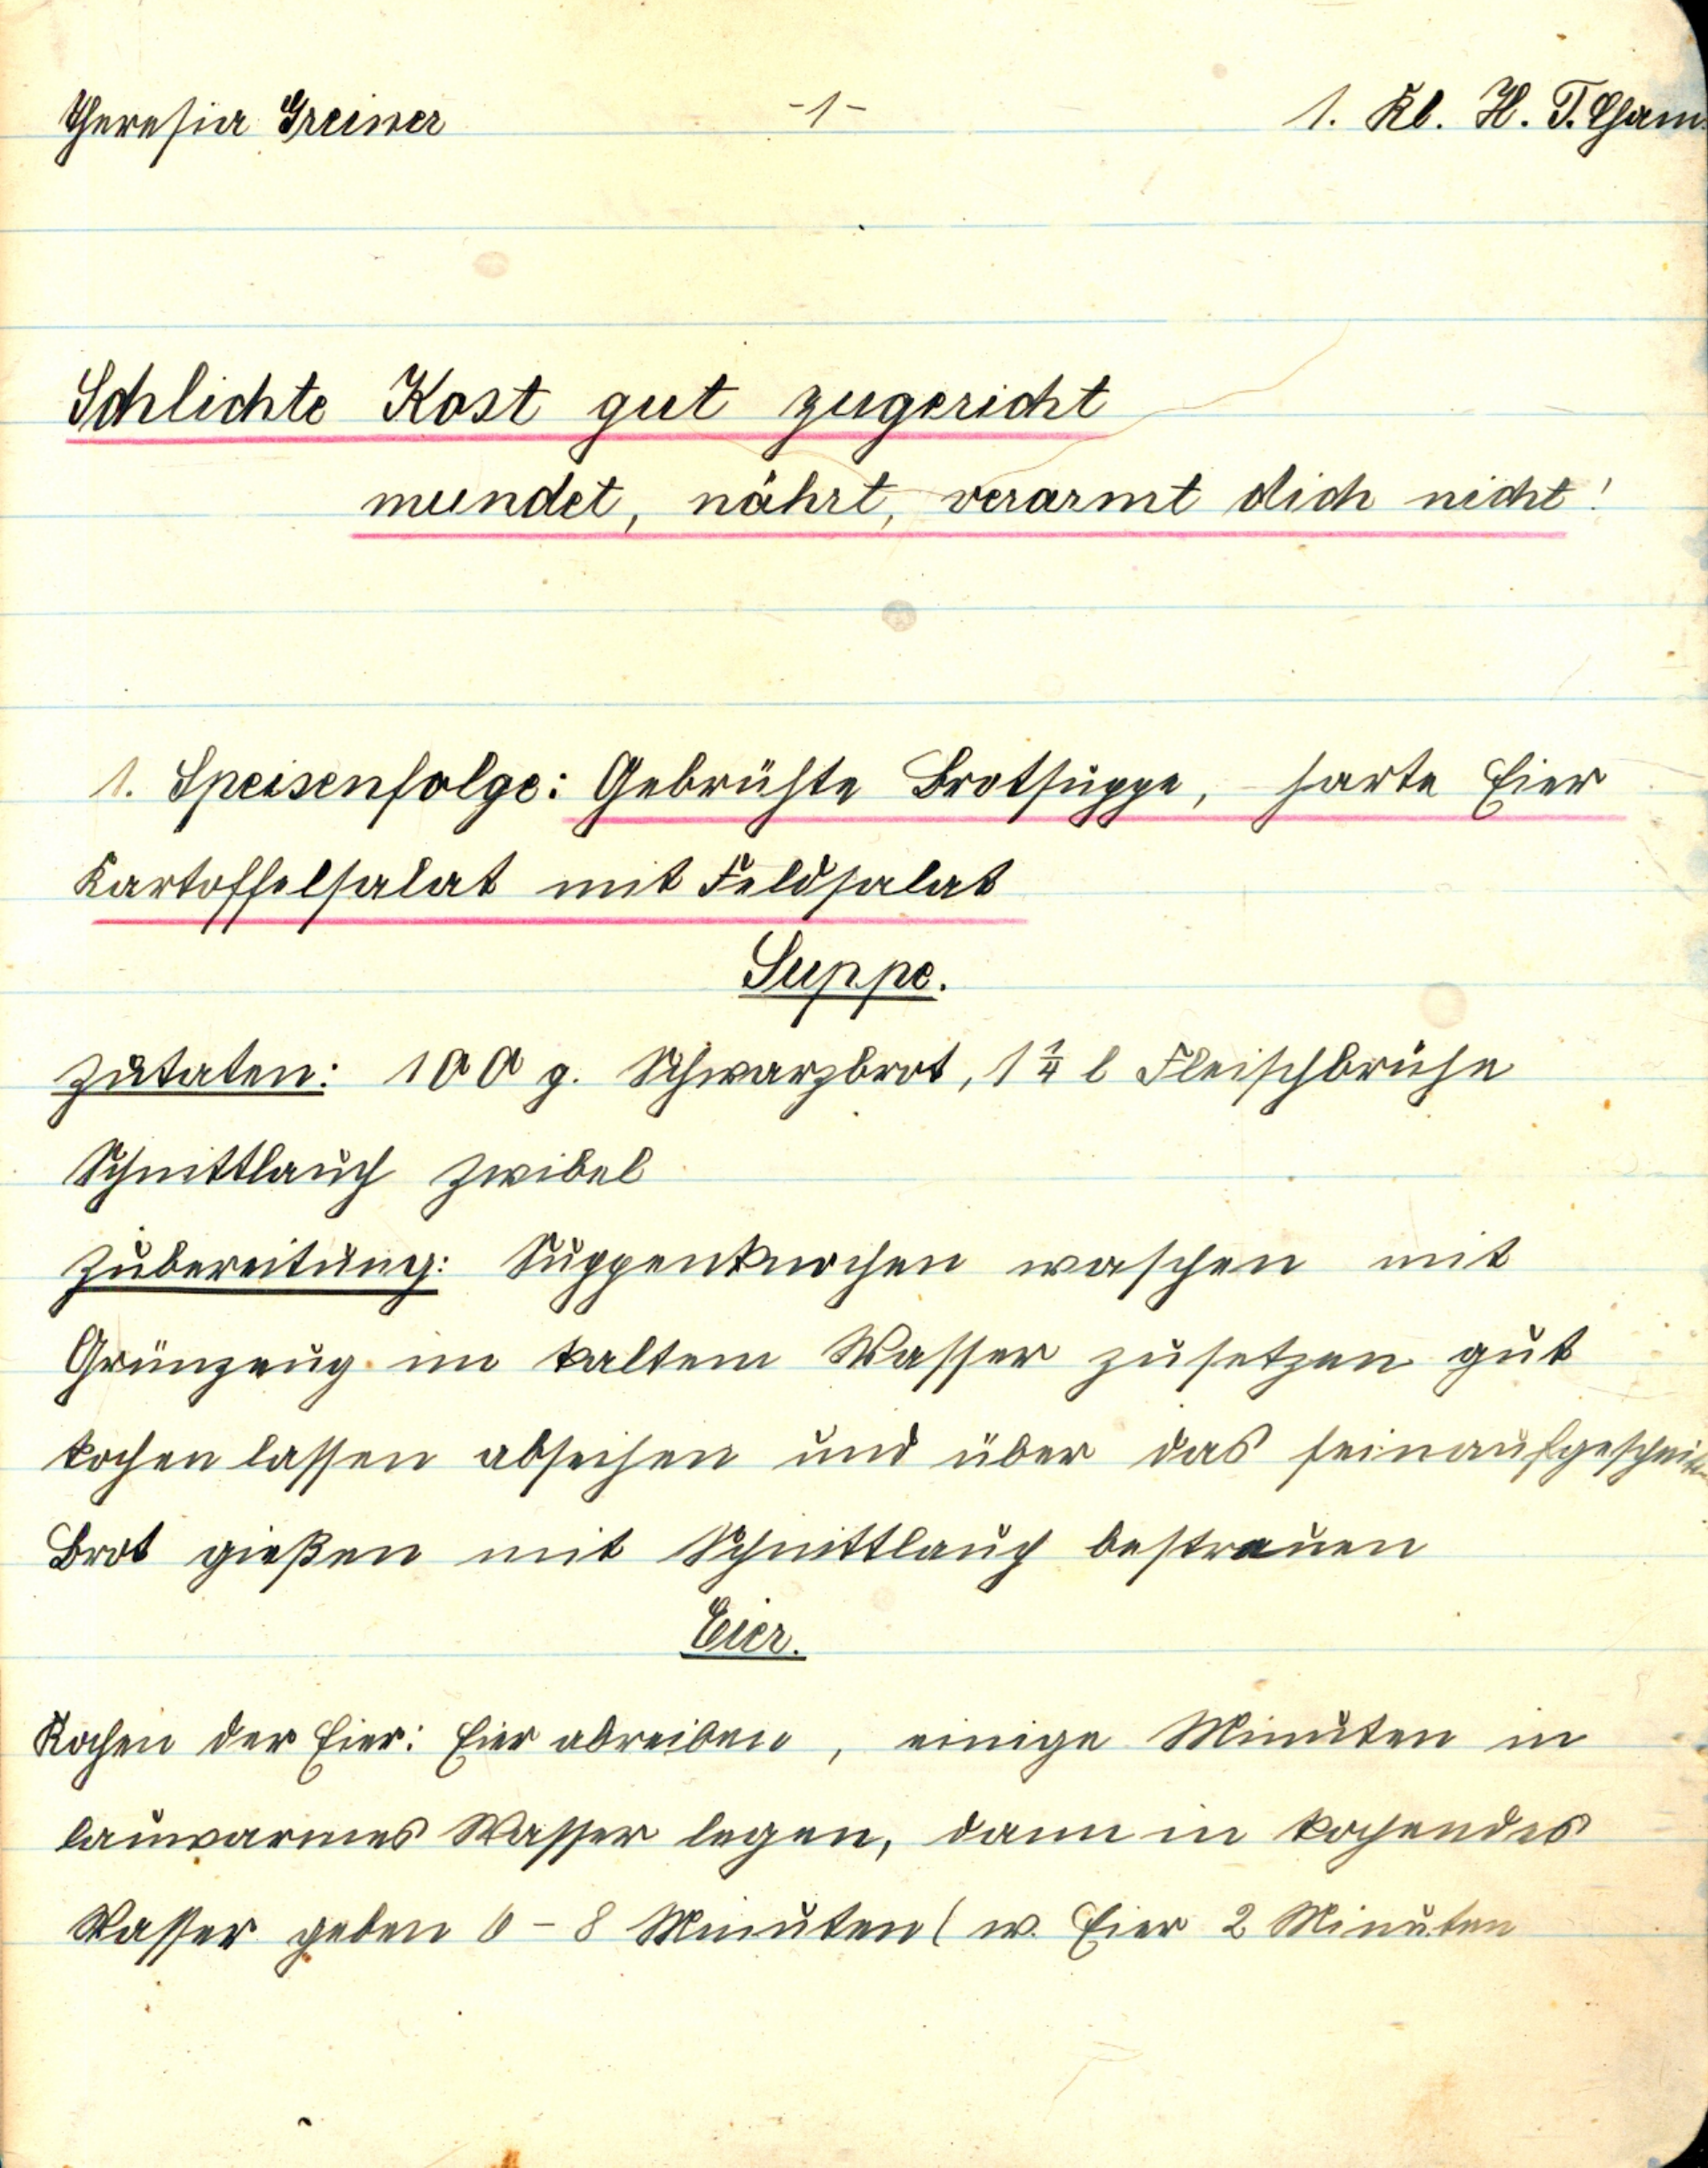 Theresia Greiner -1- 1. Kl. H. T. Cham
Schlichte Kost gut zugericht
mundet, nährt, verarmt dich nicht!
1. Speisenfolge: Gebrühte Brotsuppe, harte Eier
Kartoffelsalat mit Feldsalat
Suppe.
Zutaten: 100 g. Schwarzbrot, 1 1/4 l Fleischbrühe
Schnittlauch Zwibel
Zubereitung: Suppenknochen waschen mit
Grünzeug im kaltem Wasser zusetzen gut
kochen lassen abseihen und über das
Brot gießen mit Schnittlauch bestreuen
Eier.
Kochen der Eier: Eier abreiben, einige Minuten in
lauwarmes Wasser legen, dann in kochendes
Wasser geben 6 - 8 Minuten ( w. Eier 2 Minuten